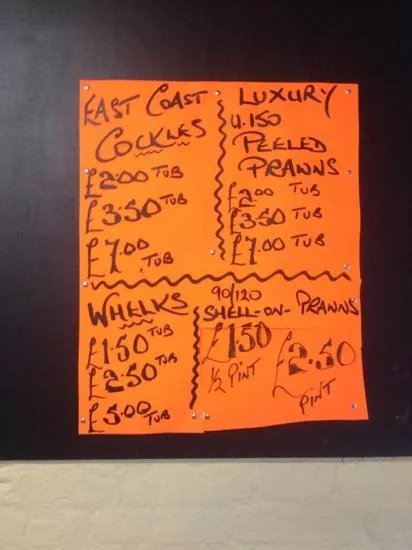 EAST COAST
COCKLES
£2.00 TUB
£3.50 TUB
£7.00 TUB
LUXURY
U.150
PEELED
PRAWNS
£2.00 TUB
£3.50 TUB
£7.00 TUB
WHELKS
£1.50 TUB
£2.50 TUB
£5.00 TUB
90/120
SHELL-ON-PRAWNS
£1.50
1/2 PINT
£2.50
PINT